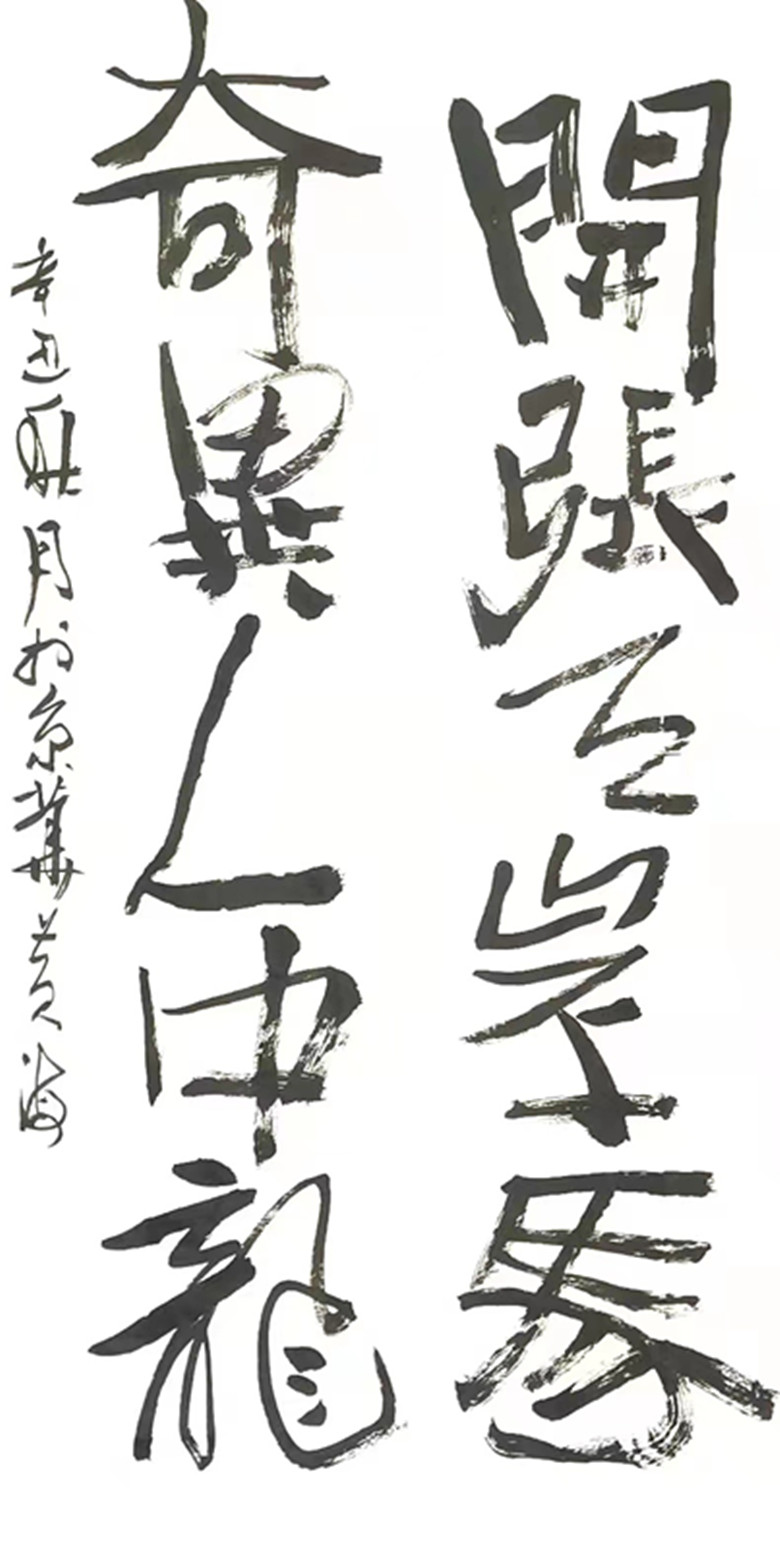 開張天岸馬
奇異人中龍
辛丑月於京華黄海